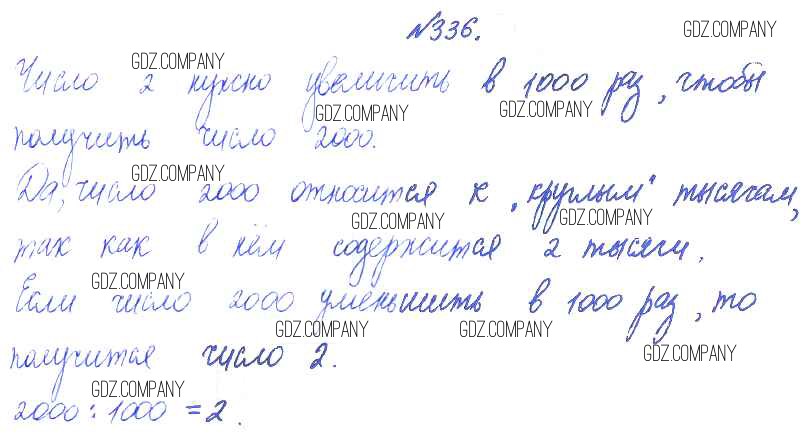 №336. GDZ.COMPANY
GDZ.COMPANY
Число 2 нужно увеличить в 1000 раз, чтобы
GDZ.COMPANY GDZ.COMPANY
получить число 2000.
GDZ.COMPANY
Да, число 2000 относится к „круглым" тысячам,
GDZ.COMPANY GDZ.COMPANY
так как в нём содержится 2 тысячи.
GDZ.COMPANY
Если число 2000 уменьшить в 1000 раз, то
GDZ.COMPANY GDZ.COMPANY
получится число 2.
GDZ.COMPANY
GDZ.COMPANY
2000 : 1000 = 2.